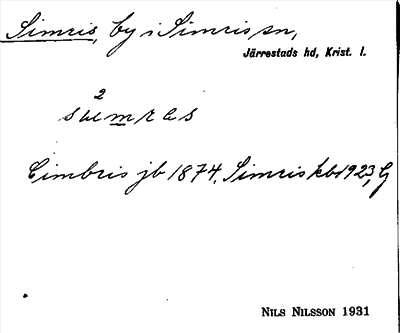 Simris, by i Simris sn,
Järrestads hd, Krist. l.
2
Cimbris jb 1874, Simris kb 1923, Cj
NILS NILSSON 1931